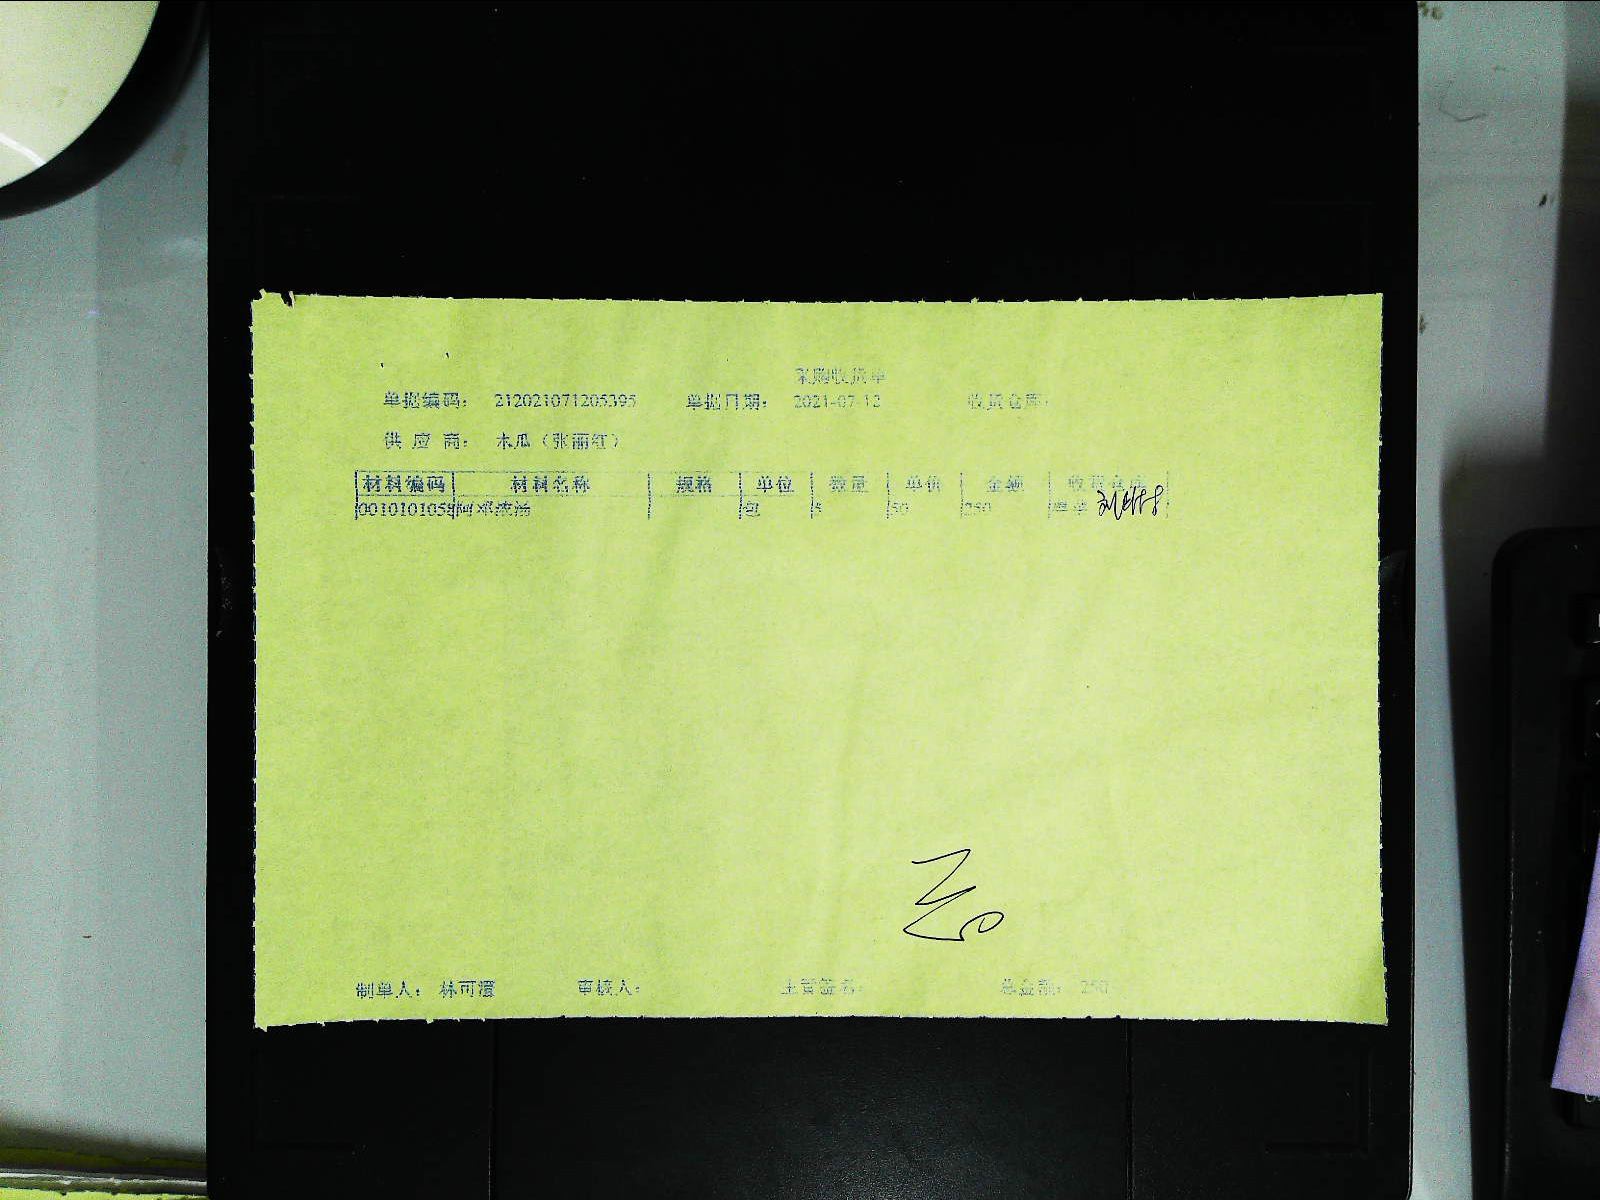 采购收货单
单据编码： 212021071205395 单据日期： 2021-07-12 收货仓库：
供 应 商： 木瓜（张丽红）
材料编码 材料名称 规格 单位 数量 单价 金额 收货仓库
0010101058 阿邓浓汤 包 5 50 250
制单人： 林可 审核人： 主管签名： 总金额： 250